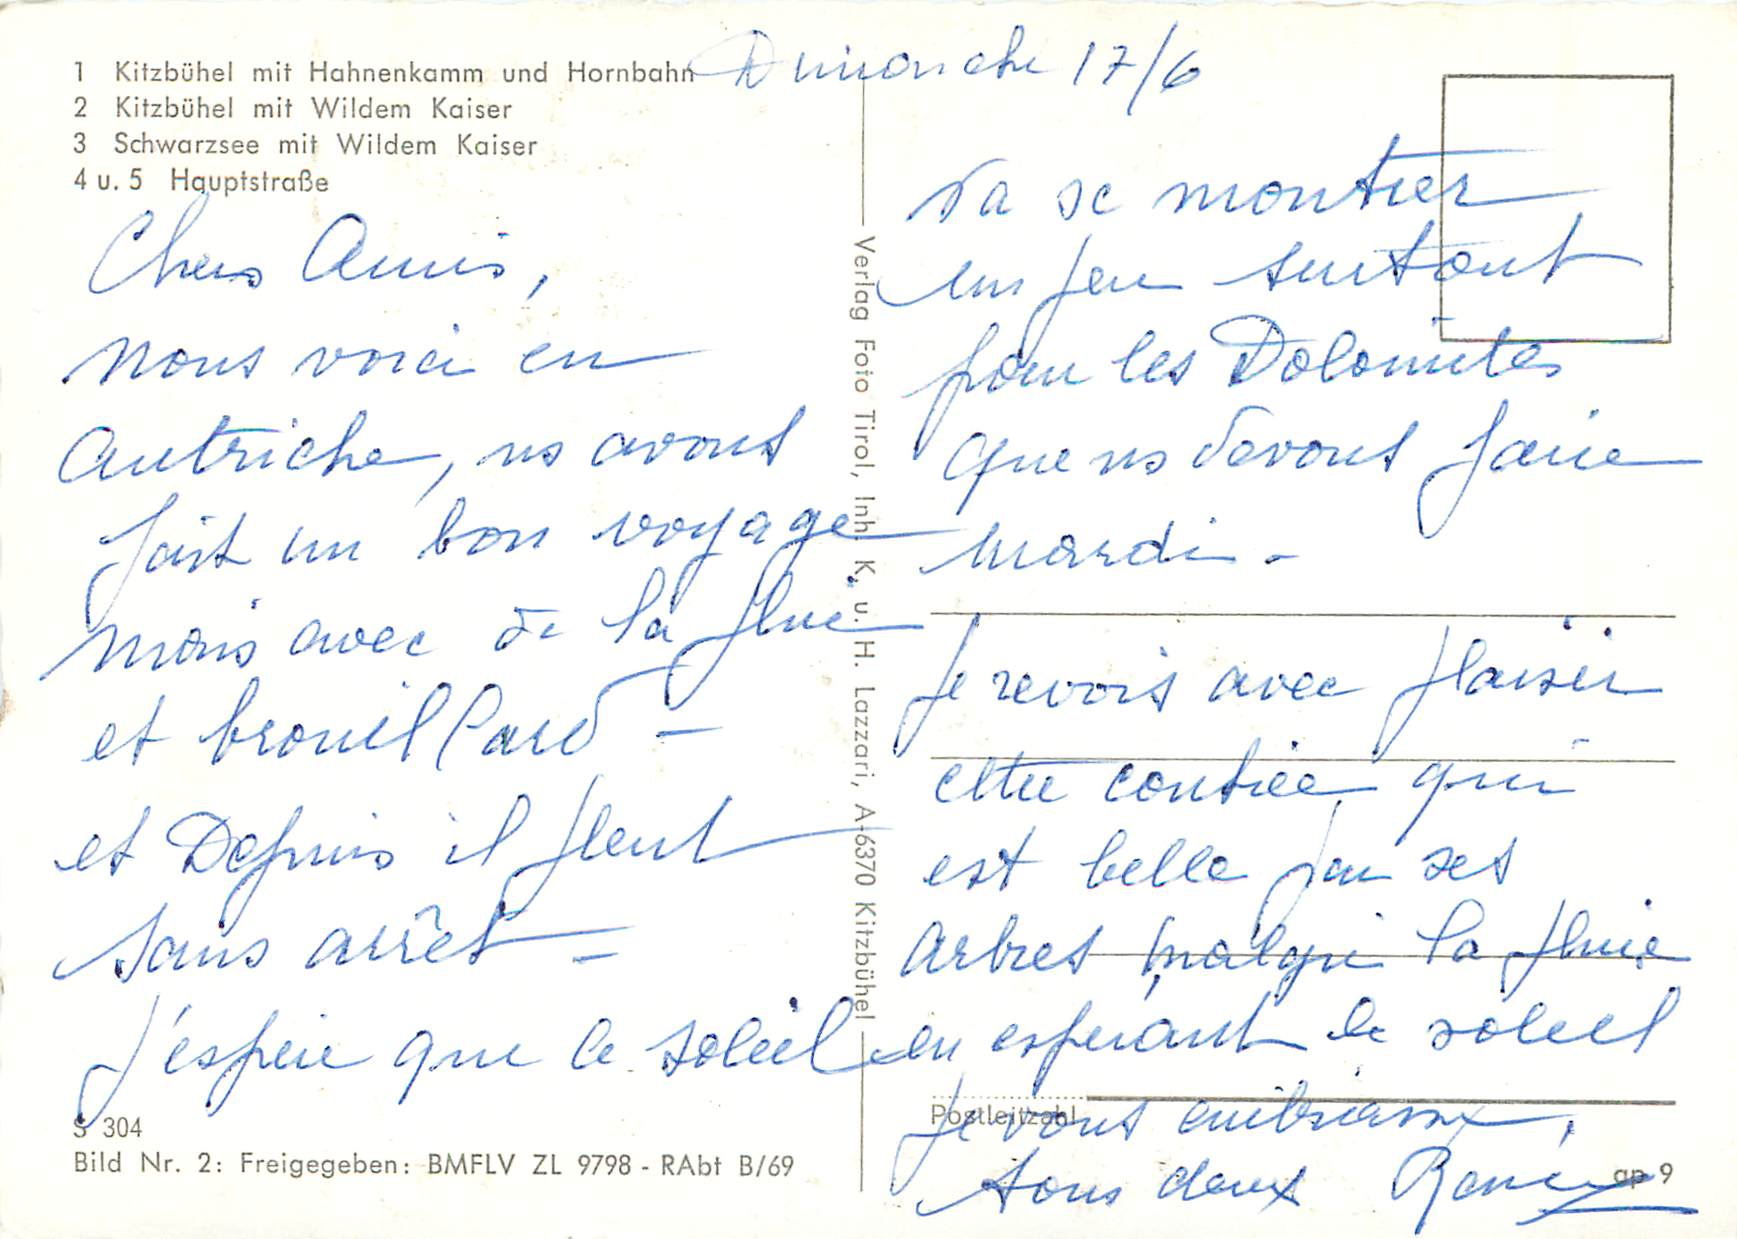 1 Kitzbühel mit Hahnenkamm und Hornbahn
2 Kitzbühel mit Wildem Kaiser
3 Schwarzsee mit Wildem Kaiser
4 u. 5 Hauptstraße
Dimanche 17/6
Chers Amis,
nous voici en
Autriche, ns avons
fait un bon voyage
mais avec de la pluie
et brouillard -
et Depuis il pleut
sans arrêt -
J'espère que le soleil
va se montrer
un peu surtout
pour les Dolomites
que ns devons faire
mardi -
Je revois avec plaisir
cette contrée qui
est belle par ses
arbres malgré la pluie
en espérant le soleil
je vous embrasse,
tous deux
Verlag Foto Tirol, Inh. K. u. H. Lazzari, A-6370 Kitzbühel
S 304
Bild Nr. 2: Freigegeben: BMFLV ZL 9798 - RAbt B/69
Postleitzahl
ap 9